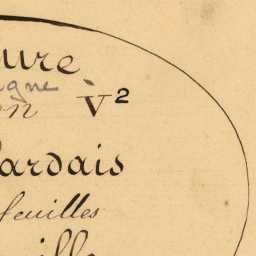 ure
igne
on V²
ardais
feuilles
ille